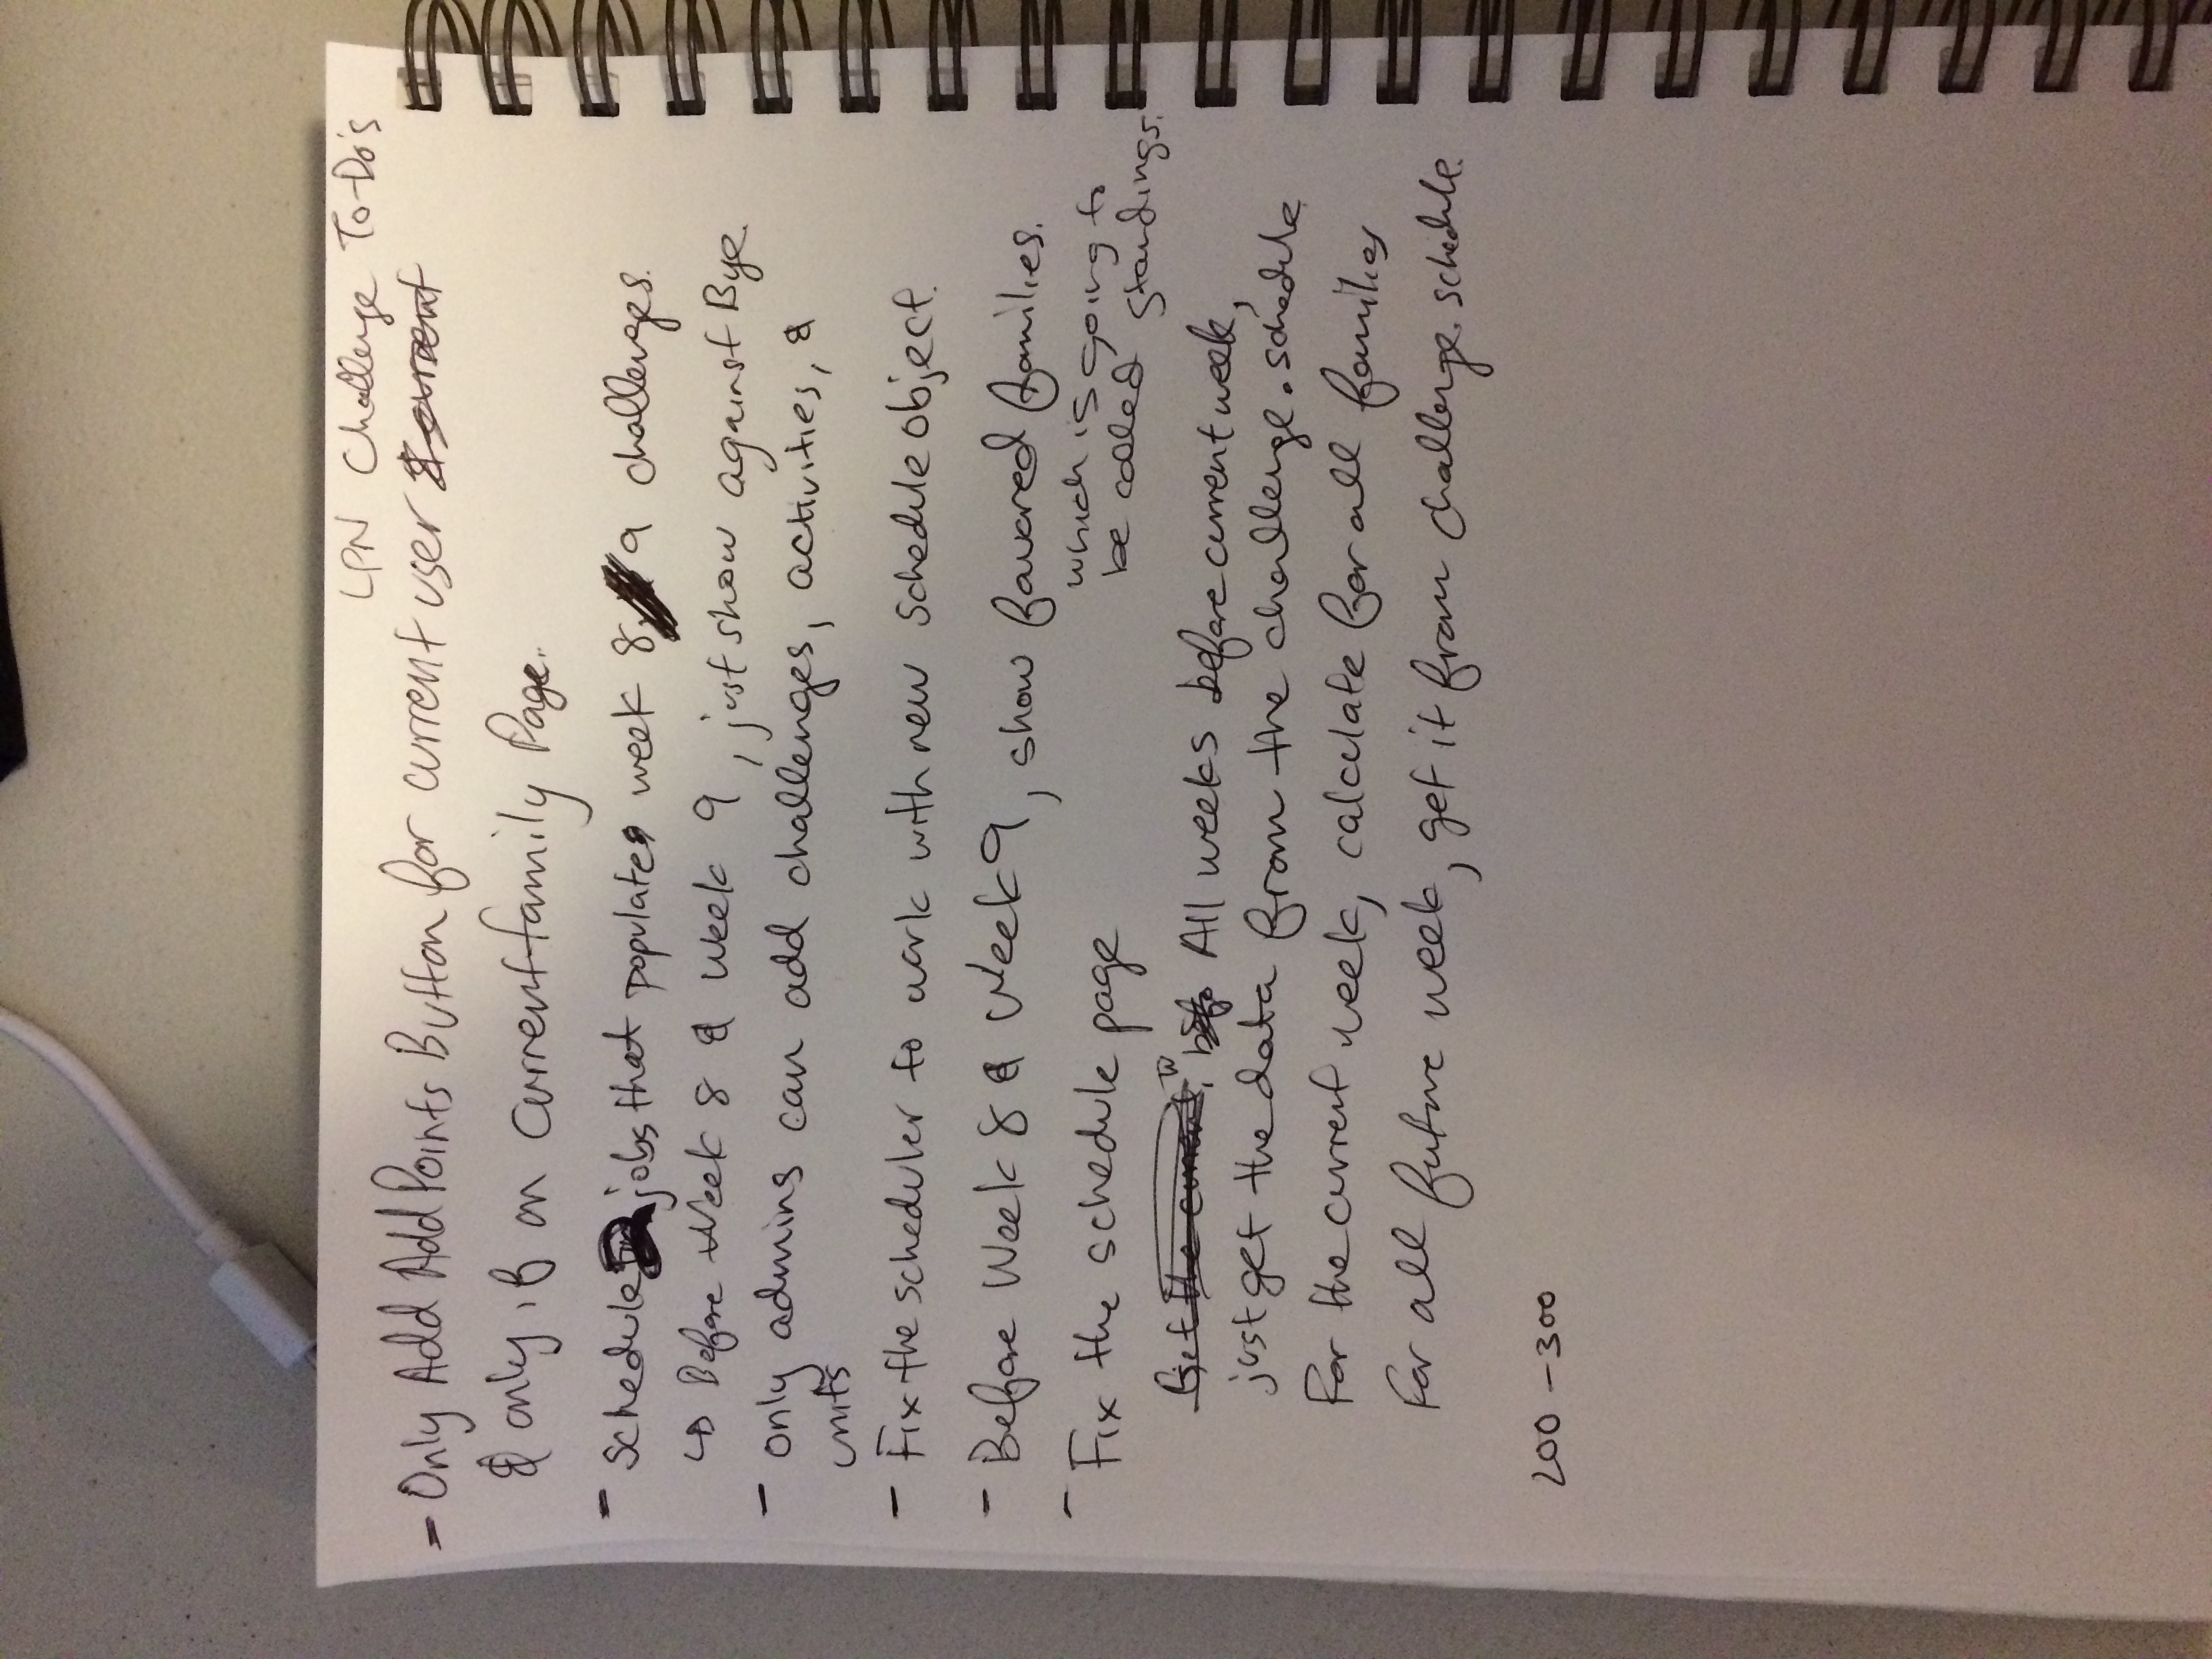 LPN Challenge To-Do's
- Only Add Add Points Button for current user & current
& only if on current family Page.
- Schedule jobs that populates week 8 9 challenges.
↳ Before Week 8 & Week 9, just show against Bye.
- only admins can add challenges, activities, &
units
- Fix the scheduler to work with new schedule object.
- Before Week 8 & Week 9, show favored families.
- Fix the schedule page
which is going to
be called standings.
Get the current, All weeks before current week,
just get the data from the challenge.schedule
For the current week, calculate for all families
For all future week, get it from challenge.schedule.
200 - 300